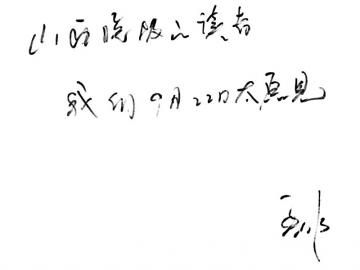 山西晚报的读者
我们9月22日太原见